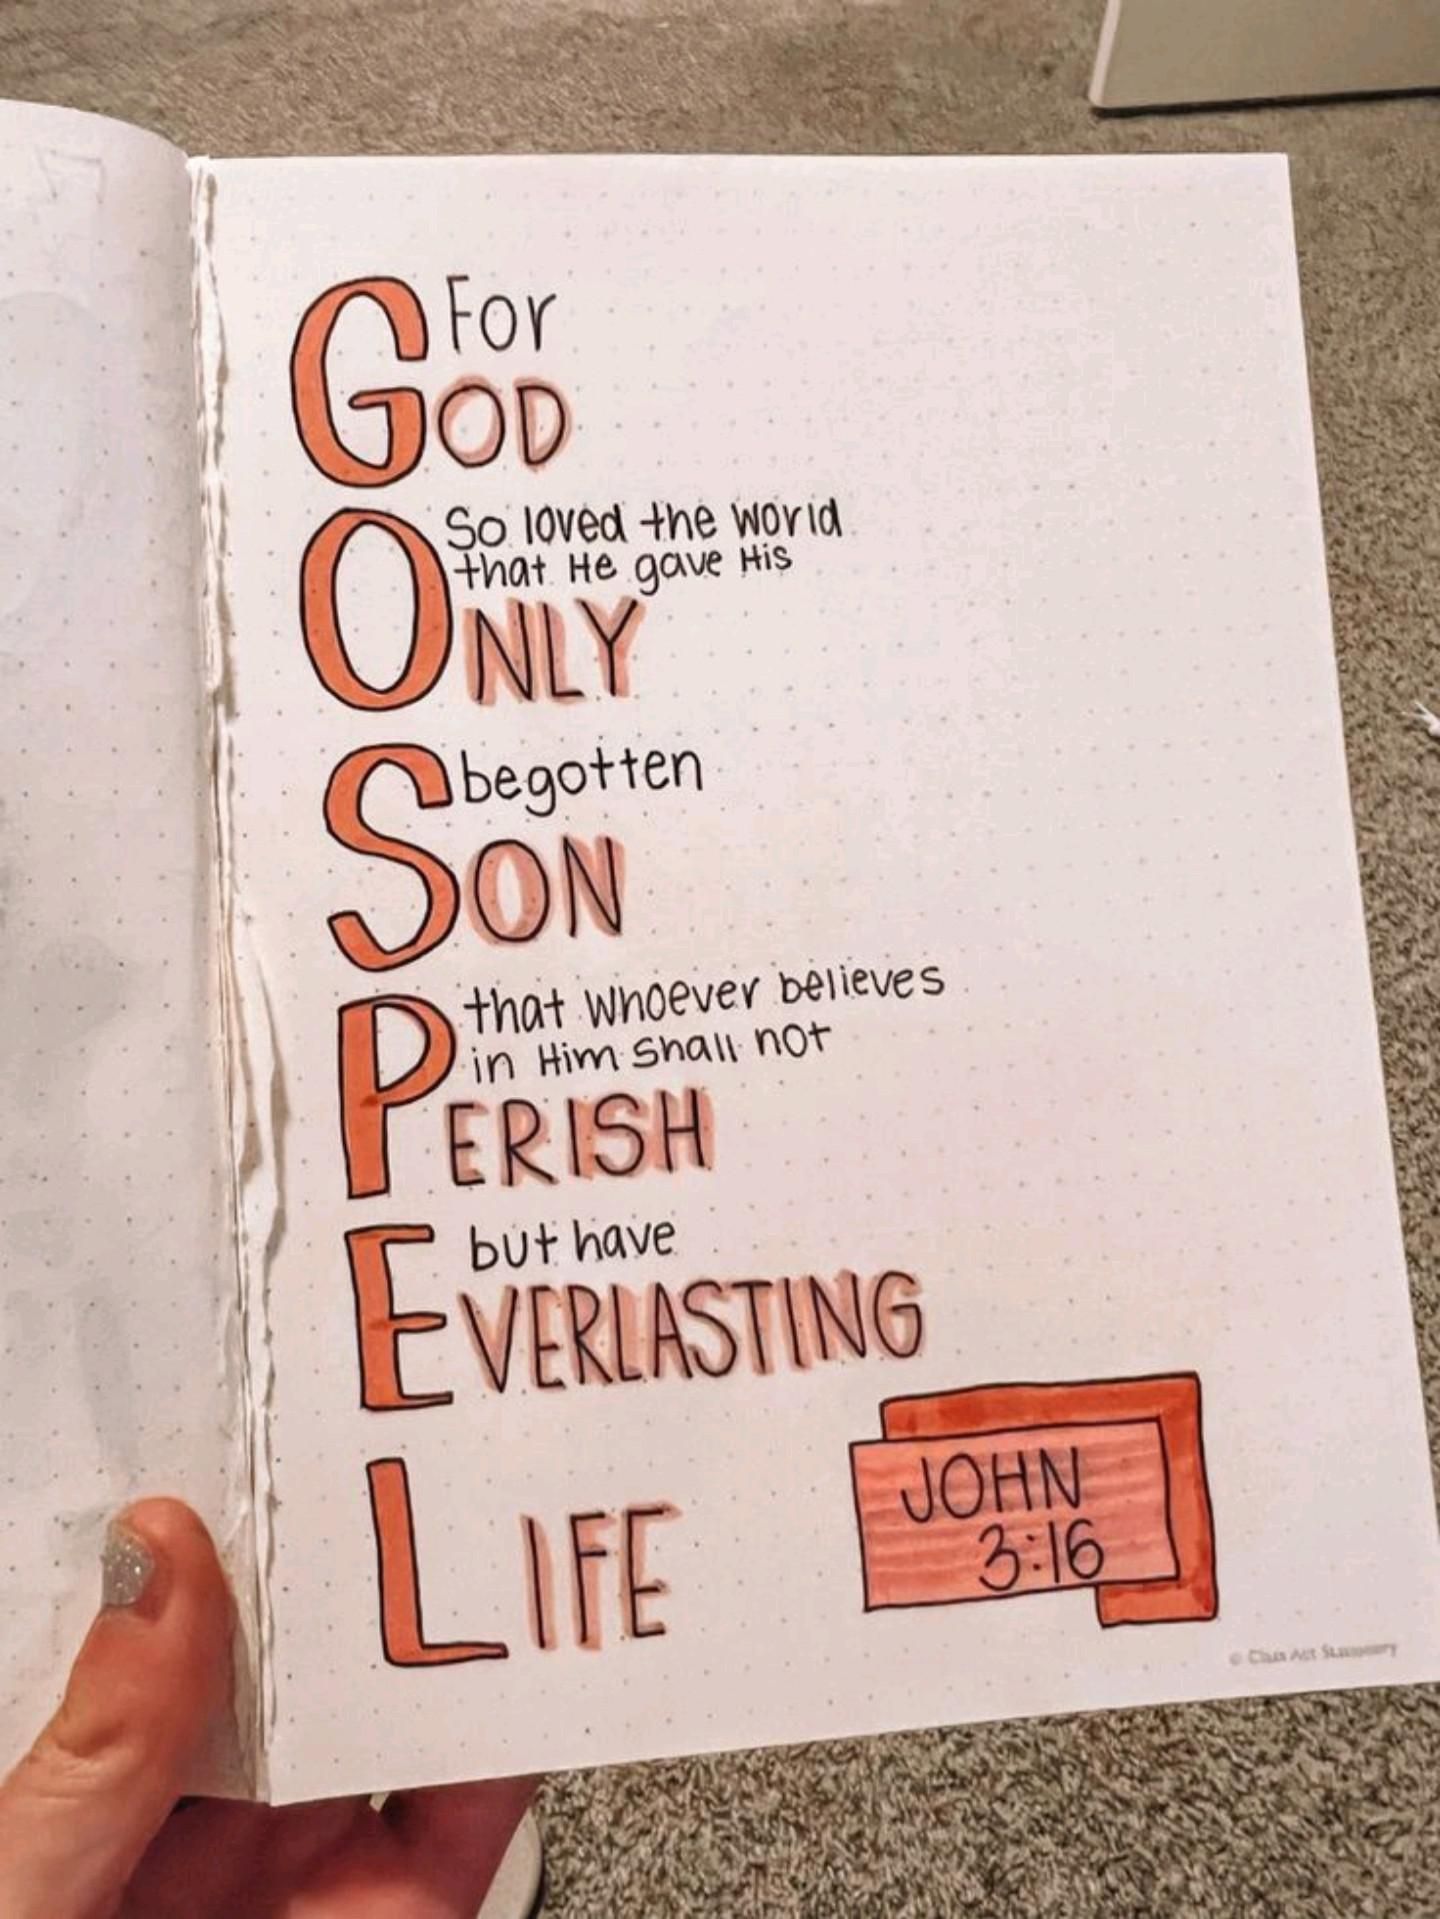 For
GOD
So loved the world
that He gave His
ONLY
begotten
SON
that whoever believes
in Him shall not
PERISH
but have
EVERLASTING
LIFE
JOHN
3:16
© Class Act Stationery